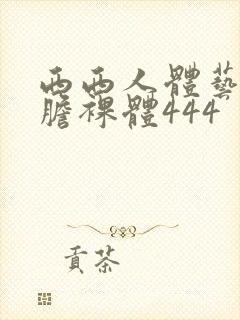 西西人體藝
膽裸體444
貢茶